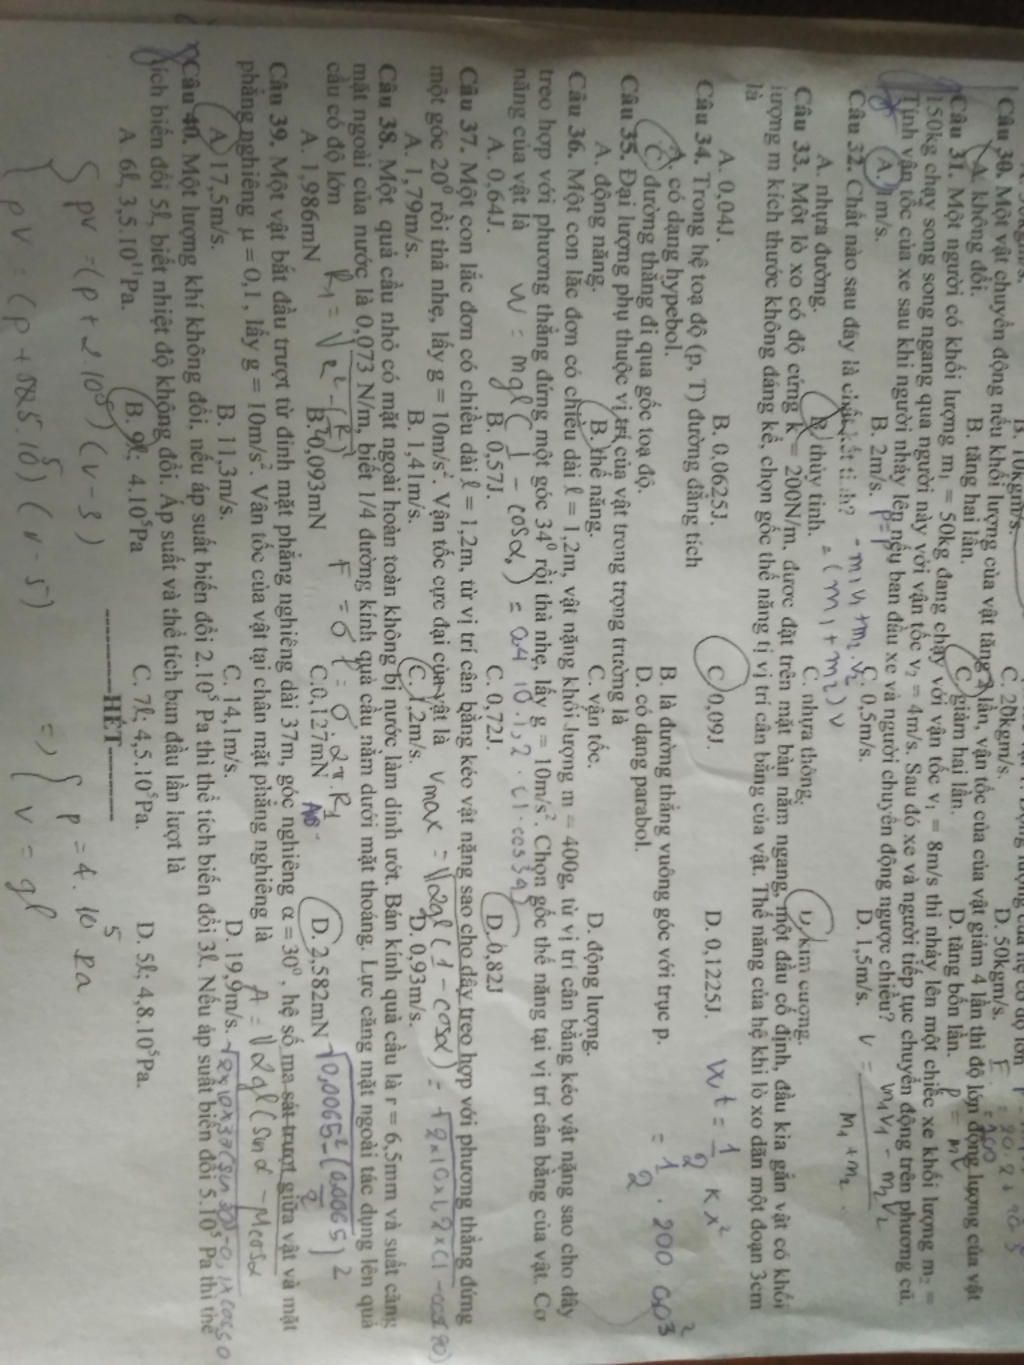 B. 10kgm/s.
C. 20kgm/s.
D. 50kgm/s.
Câu 30. Một vật chuyển động nếu khối lượng của vật tăng 2 lần, vận tốc của của vật giảm 4 lần thì độ lớn động lượng của vật
A. không đổi.
B. tăng hai lần.
C. giảm hai lần.
D. tăng bốn lần.
Câu 31. Một người có khối lượng m₁ = 50kg đang chạy với vận tốc v₁ = 8m/s thì nhảy lên một chiếc xe khối lượng m₂ =
150kg chạy song song ngang qua người này với vận tốc v₂ = 4m/s. Sau đó xe và người tiếp tục chuyển động trên phương cũ.
Tính vận tốc của xe sau khi người nhảy lên nếu ban đầu xe và người chuyển động ngược chiều?
A. 1m/s.
B. 2m/s.
C. 0,5m/s.
D. 1,5m/s.
v = m₁v₁ - m₂v₂
m₁ + m₂
Câu 32. Chất nào sau đây là chất kết tinh?
- m₁v₁ + m₂.v₂
= (m₁ + m₂) v
A. nhựa đường.
B. thủy tinh.
C. nhựa thông.
D. kim cương.
Câu 33. Một lò xo có độ cứng k = 200N/m, được đặt trên mặt bàn nằm ngang, một đầu cố định, đầu kia gắn vật có khối
lượng m kích thước không đáng kể, chọn gốc thế năng tị vị trí cân bằng của vật. Thế năng của hệ khi lò xo dãn một đoạn 3cm
là
A. 0,04J.
B. 0,0625J.
C. 0,09J.
D. 0,1225J.
Wt = 1/2 kx²
= 1/2 . 200
Câu 34. Trong hệ toạ độ (p, T) đường đẳng tích
A. có dạng hypebol.
B. là đường thẳng vuông góc với trục p.
C. đường thẳng đi qua gốc toạ độ.
D. có dạng parabol.
Câu 35. Đại lượng phụ thuộc vị trí của vật trong trọng trường là
A. động năng.
B. thế năng.
C. vận tốc.
D. động lượng.
Câu 36. Một con lắc đơn có chiều dài ℓ = 1,2m, vật nặng khối lượng m = 400g, từ vị trí cân bằng kéo vật nặng sao cho dây
treo hợp với phương thẳng đứng một góc 34⁰ rồi thả nhẹ, lấy g = 10m/s². Chọn gốc thế năng tại vị trí cân bằng của vật. Cơ
năng của vật là
W = mgl (1 - cosα₀) = 0,4 10.1,2.(1-cos34)
A. 0,64J.
B. 0,57J.
C. 0,72J.
D. 0,82J
Câu 37. Một con lắc đơn có chiều dài ℓ = 1,2m, từ vị trí cân bằng kéo vật nặng sao cho dây treo hợp với phương thẳng đứng
một góc 20⁰ rồi thả nhẹ, lấy g = 10m/s². Vận tốc cực đại của vật là
vmax = √2gl(1 - cosα) = √2×10×1,2×(1-cos20)
A. 1,79m/s.
B. 1,41m/s.
C. 1,2m/s.
D. 0,93m/s.
Câu 38. Một quả cầu nhỏ có mặt ngoài hoàn toàn không bị nước làm dính ướt. Bán kính quả cầu là r = 6,5mm và suất căng
mặt ngoài của nước là 0,073 N/m, biết 1/4 đường kính quả cầu nằm dưới mặt thoáng. Lực căng mặt ngoài tác dụng lên quả
cầu có độ lớn
F = σ l = σ . 2π . R₁
A. 1,986mN
B. 0,093mN
C. 0,127mN
D. 2,582mN
Câu 39. Một vật bắt đầu trượt từ đỉnh mặt phẳng nghiêng dài 37m, góc nghiêng α = 30⁰, hệ số ma sát trượt giữa vật và mặt
phẳng nghiêng μ = 0,1, lấy g = 10m/s². Vân tốc của vật tại chân mặt phẳng nghiêng là
A = √2gl(sinα - μcosα
A. 17,5m/s.
B. 11,3m/s.
C. 14,1m/s.
D. 19,9m/s.
Câu 40. Một lượng khí không đổi, nếu áp suất biến đổi 2.10⁵ Pa thì thể tích biến đổi 3ℓ. Nếu áp suất biến đổi 5.10⁵ Pa thì thể
tích biến đổi 5ℓ, biết nhiệt độ không đổi. Áp suất và thể tích ban đầu lần lượt là
A. 6ℓ, 3,5.10¹¹Pa.
B. 9ℓ; 4.10⁵Pa
C. 7ℓ; 4,5.10⁵Pa.
D. 5ℓ; 4,8.10⁵Pa.
----------HẾT----------
{ pV = (p + 2 10⁵) (v - 3)
pV = (p + 5.10⁵) (v - 5)
=> { p = 4.10⁵ Pa
V = 9l